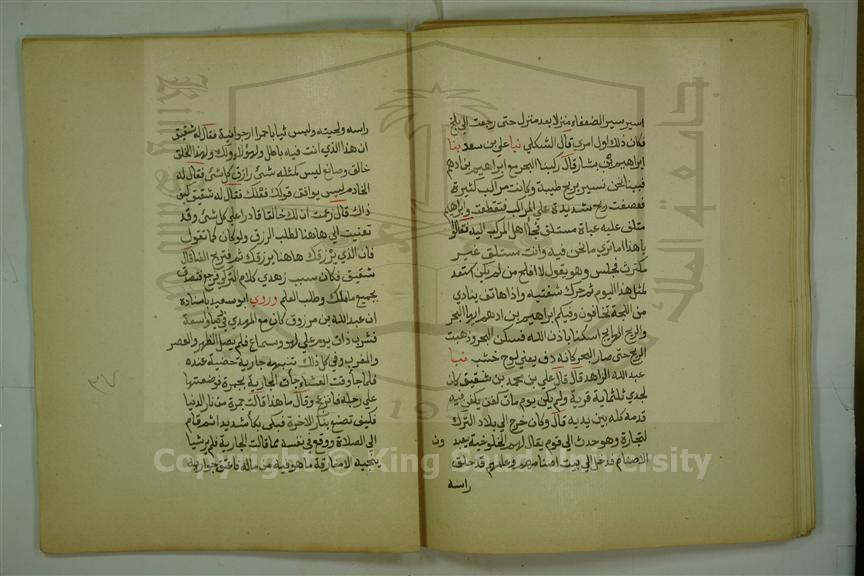 اسير سير الضعفاء منزلا بعد منزل حتى رجعت الى بلخ
فكان ذلك اول امري قال الشكلي نبا علي بن سعد بنا
ابراهيم بن بشار قال ركبنا البحر مع ابراهيم بن ادهم
فبينا نحن نسير بريح طيبة وكانت مراكب كثيرة
فعصفت ريح شديدة على المركب فتقطعت وابراهيم
ملتف عليه عباة مستلق فجا اهل المركب اليه فقالو
يا هذا اما ترى ما نحن فيه وانت مستلق غير
مكترث فجلس وهو يقول لا افلح من لم يكن استعد
لمثل هذا اليوم ثم حرك شفتيه واذا هاتف ينادي
من اللجة تخافون وفيكم ابراهيم بن ادهم ايها البحر
والريح الهايج اسكنا باذن الله فسكن البحر وذهبت
الريح حتى صار البحر كانه دف يعني لوح خشب نبا
عبد الله الزاهد قال قال علي بن محمد بن شقيق كان
لجدي ثلثماية قرية ولم يكن يوم مات كفن يكفن فيه
قدمه كله بين يديه قال وكان خرج الى بلاد الترك
لتجارة وهو حدث الى قوم يقال لهم الخلوخية يعبدون
الاصنام فدخل الى بيت اصنامهم وعالمهم قد حلق
راسه
راسه ولحيته ولبس ثيابا حمرا ارجوانية فقال له شقيق
ان هذا الذي انت فيه باطل ولهؤلاء ولك ولهذا الخلق
خالق وصانع ليس كمثله شئ رازق كل شئ فقال له
الخادم ليس يوافق قولك فعلك فقال له شقيق كيف
ذاك قال زعمت ان لك خالقا قادرا على كل شئ وقد
تعنيت الى هاهنا لطلب الرزق ولو كان كما تقول
فان الذي يرزقك هاهنا يرزقك ثم فتربح العنا قال
شقيق فكان سبب زهدي كلام التركي فرجع فتصدق
بجميع ما ملك وطلب العلم وروي ابو سعيد باسناده
ان عبد الله بن مرزوق كان مع المهدي في دنيا واسعة
فشرب ذات يوم على لهو وسماع فلم يصل الظهر والعصر
والمغرب وفي كل ذلك تنبهه جارية حضية عنده
فلما جاء وقت العشاء جات الجارية بجمرة فوضعتها
على رجله فانزعج وقال ما هذا قالت جمرة من نار الدنيا
فكيف تصنع بنار الاخرة فبكى بكاء شديدا ثم قام
الى الصلاة ووقع في نفسه مما قالت الجارية فلم ير شيا
ينجيه الا مفارقة ما هو فيه من ماله فاعتق جواريه
Copyright © King Saud University
King Saud University
جامعة الملك سعود
1957